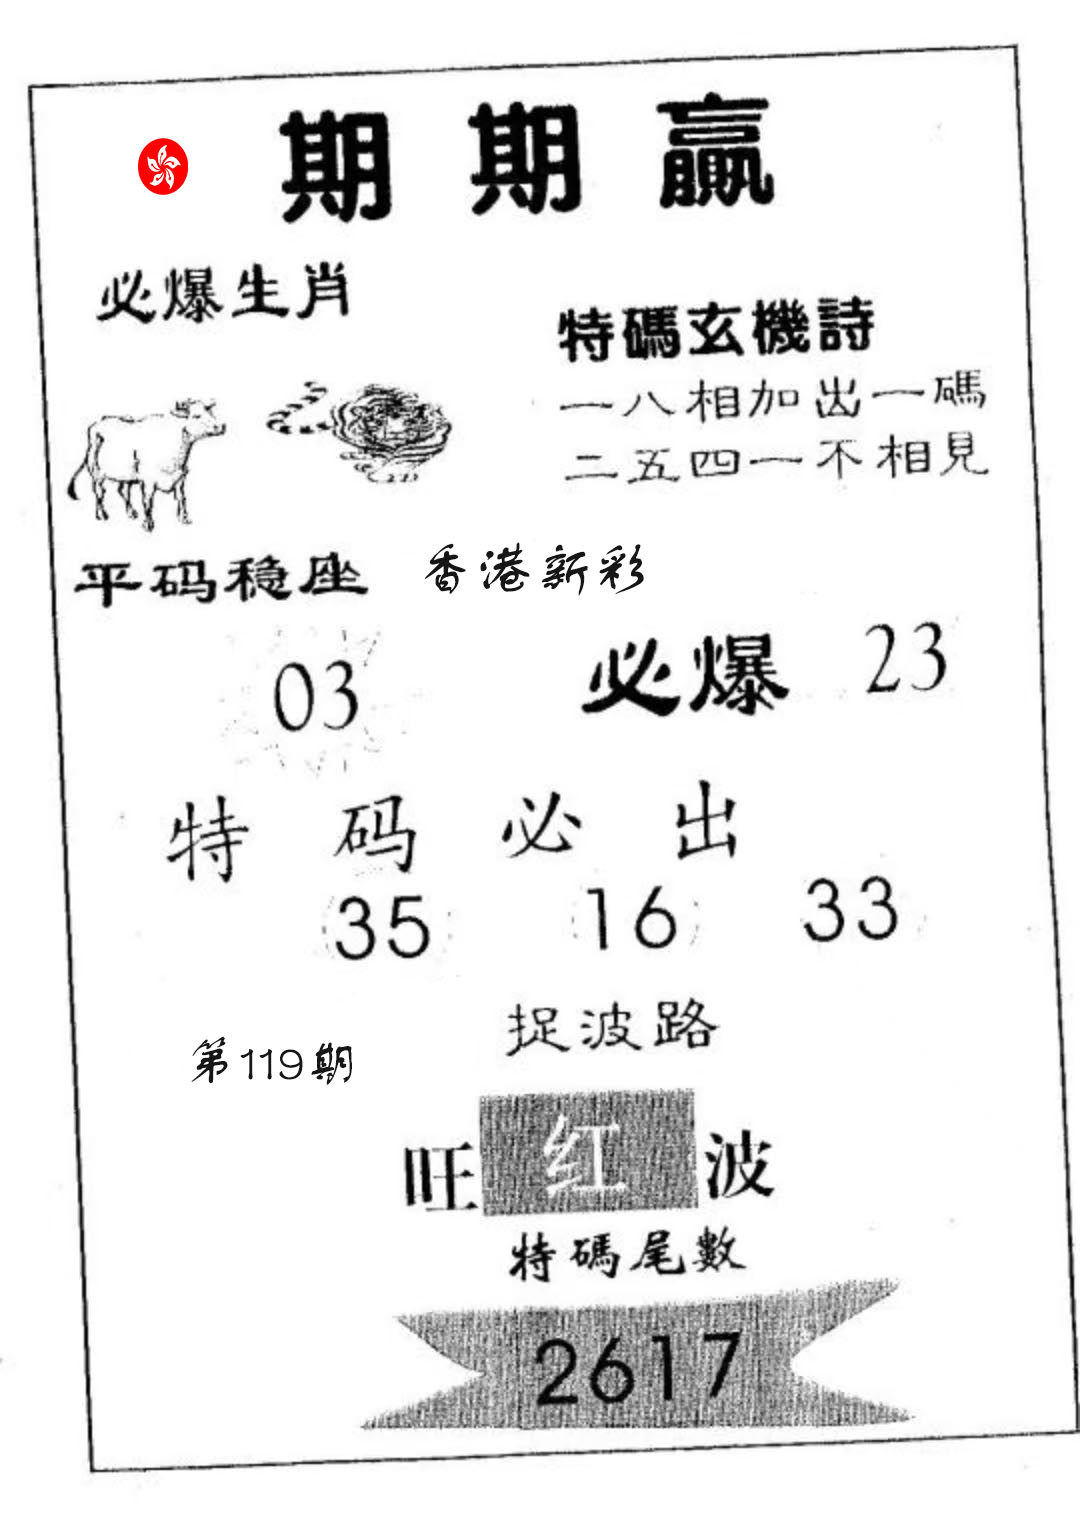 期期赢
必爆生肖
特碼玄機詩
一八相加出一碼
二五四一不相見
平码稳座
香港新彩
03
必爆 23
特码必出
35 16 33
捉波路
第119期
旺红波
特碼尾數
2617